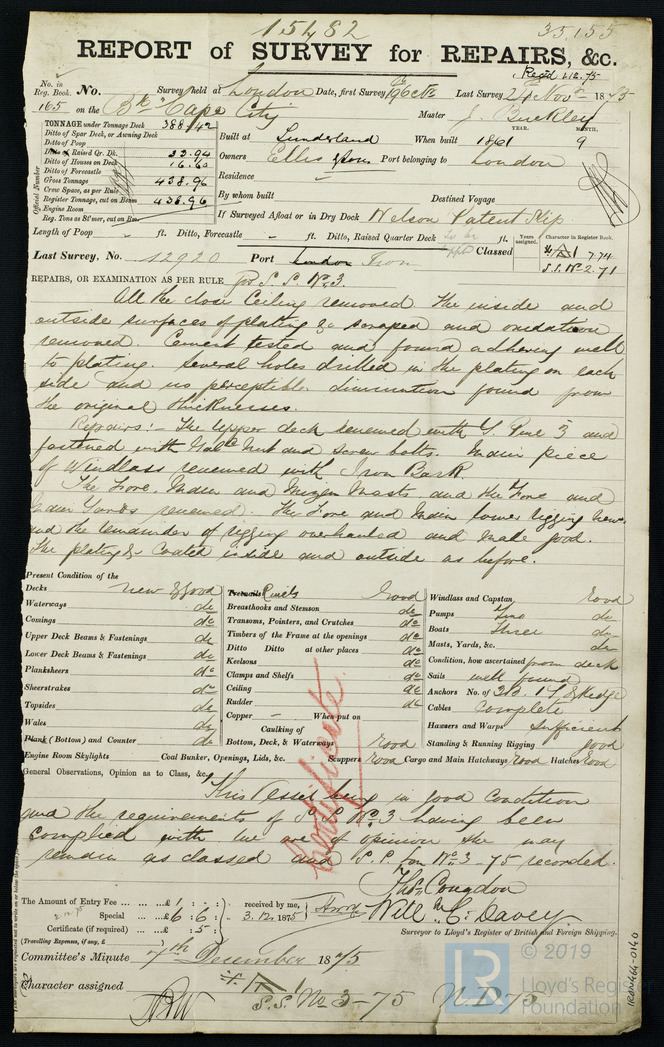 15482
35,155
REPORT of SURVEY for REPAIRS, &c.
Recd 1.12.75
No. in Reg. Book. No. Survey held at London Date, first Survey Octr Last Survey 24 Novr 1875
165 on the Bk "Cape City Master J. Buckley
TONNAGE under Tonnage Deck 388.42
Ditto of Spar Deck, or Awning Deck
Ditto of Poop
Ditto of Raised Qr. Dk. 33.94
Ditto of Houses on Deck 16.60
Ditto of Forecastle
Gross Tonnage 438.96
Crew Space, as per Rule
Register Tonnage, cut on Beam 438.96
Engine Room
Reg. Tons as St'mer, cut on Bm
Official Number
Built at Sunderland When built 1861 YEAR. MONTH. 9
Owners Ellis & Sons Port belonging to London
Residence
By whom built Destined Voyage
If Surveyed Afloat or in Dry Dock Nelson Patent Slip
Length of Poop - ft. Ditto, Forecastle - ft. Ditto, Raised Quarter Deck ft. Classed
Years assigned. Character in Register Book.
A 1 7.74
S.S. No 2.71
Last Survey, No. 12920 Port London Iron
REPAIRS, OR EXAMINATION AS PER RULE for S. S. No. 3.
All the close Ceiling removed the inside and
outside surfaces of plating &c scraped and oxidation
removed. Cement tested and found adhering well
to plating. Several holes drilled in the plating on each
side and no perceptible diminution found from
the original thicknesses.
Repairs:- The upper deck renewed with Y. Pine 3 and
fastened with Galvd Nut and Screw bolts. Main piece
of Windlass renewed with Iron Bark.
The Fore, Main and Mizen Masts and the Fore and
Main Yards renewed. The Fore and Main lower rigging new
and the remainder of rigging overhauled and made good.
The plating & Coated inside and outside as before.
Present Condition of the
Decks New & Good
Waterways do
Comings do
Upper Deck Beams & Fastenings do
Lower Deck Beams & Fastenings do
Planksheers do
Sheerstrakes do
Topsides do
Wales do
Plank (Bottom) and Counter do
Engine Room Skylights
Treenails Rivets Good
Breasthooks and Stemson do
Transoms, Pointers, and Crutches do
Timbers of the Frame at the openings do
Ditto Ditto at other places do
Keelsons do
Clamps and Shelfs do
Ceiling do
Rudder do
Copper - When put on
Caulking of
Bottom, Deck, & Waterways Good
Coal Bunker, Openings, Lids, &c. Scuppers Good Cargo and Main Hatchways Good Hatches Good
Windlass and Capstan Good
Pumps Two do
Boats Three do
Masts, Yards, &c. do
Condition, how ascertained from deck
Sails well found
Anchors No. of 2B. 1 S & Kedge
Cables Complete
Hawsers and Warps Sufficient
Standing & Running Rigging good
General Observations, Opinion as to Class, &c.
Certificate.
This Vessel being in good Condition
and the requirements of S. S. No. 3 having been
complied with we are of opinion she may
remain as classed and S. S. for No. 3-75 recorded.
Thos Congdon
Will M C. Davey
Surveyor to Lloyd's Register of British and Foreign Shipping.
The Amount of Entry Fee £1 : : received by me,
Special £6 : 6 : 3.12.1875
Certificate (if required) : 5 :
(Travelling Expenses, if any, £ )
Committee's Minute 7th December 1875
Character assigned A 1
S.S. No 3-75 ND 75
IRON464-0140
© 2019
LR
Lloyd's Register
Foundation